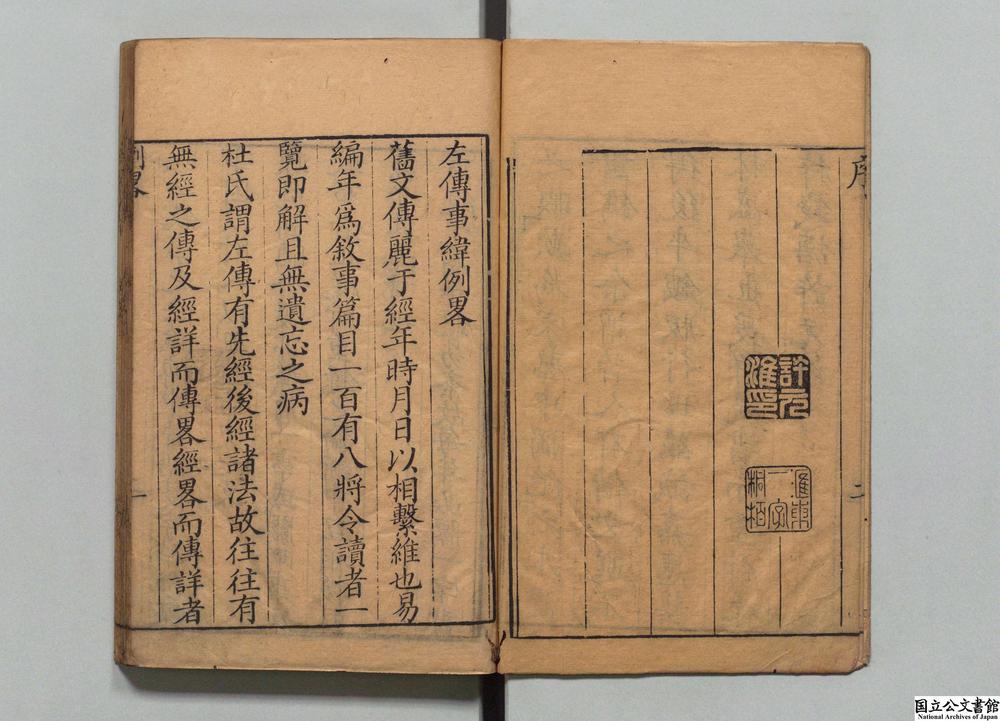 序
二
許元
淮印
淮東
一字
桐栢
左傳事緯例畧
舊文傳麗于經年時月日以相繫維也易
編年爲敘事篇目一百有八將令讀者一
覽即解且無遺忘之病
杜氏謂左傳有先經後經諸法故往往有
無經之傳及經詳而傳畧經畧而傳詳者
例畧
一
国立公文書館
National Archives of Japan